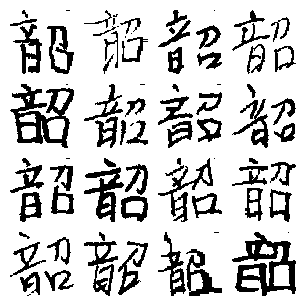 韶韶韶韶
韶韶韶韶
韶韶韶韶
韶韶韶韶